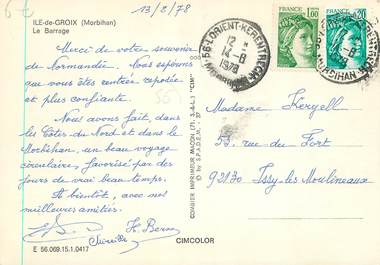 6€
13/8/78
ILE-de-GROIX (Morbihan)
Le Barrage
Merci de votre souvenir
de Normandie. Nous espérons
que vous êtes rentrée reposée
et plus confiante.
Nous avons fait, dans
les Côtes du Nord et dans le
Morbihan, un beau voyage
circulaire, favorisé par des
jours de vrai beau temps.
A bientôt, avec nos
meilleures amitiés.
Mireille
H. Bern
E 56.069.15.1.0417
CIMCOLOR
COMBIER IMPRIMEUR MACON (71, S.-&-L.) "CIM"
© by S.P.A.D.E.M.
56 LORIENT-KERENTRECH
12 H
14-8
1978
MORBIHAN
FRANCE
1,00
FRANCE
1,20
Madame Keryell
53, rue du Fort
92130 Issy-les-Moulineaux